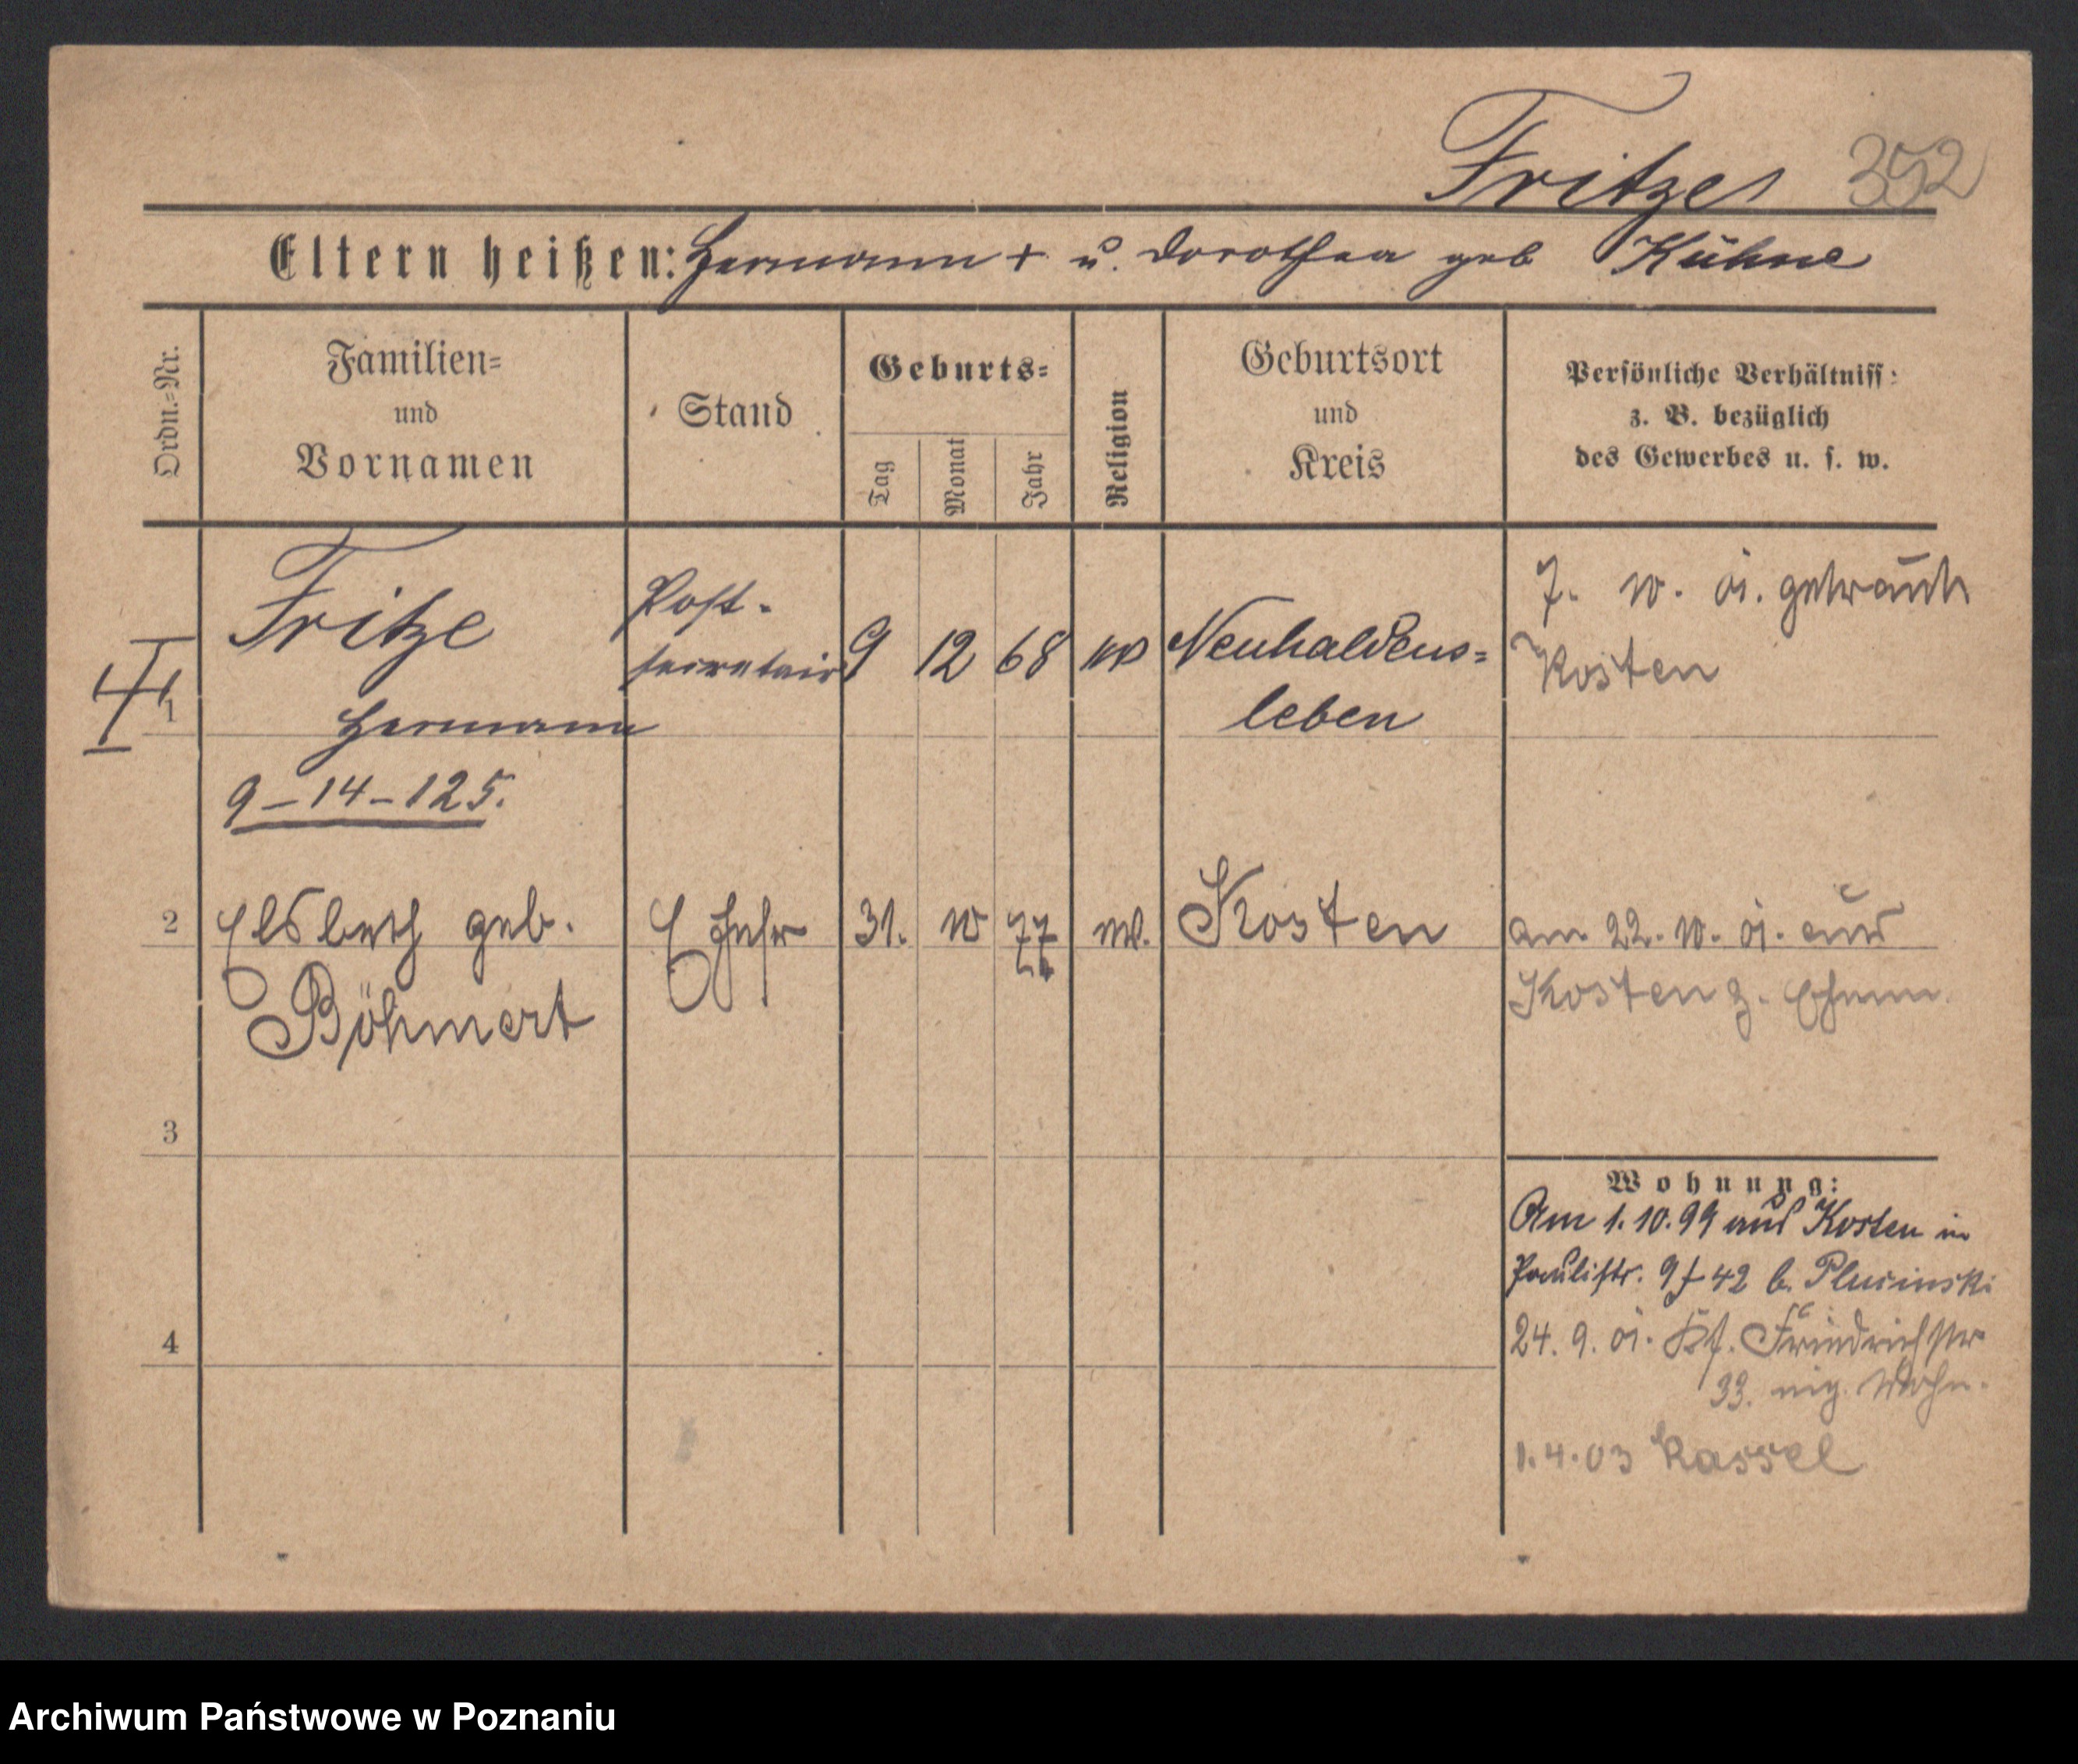 Fritze 352
Eltern heißen: Hermann + u. Dorothea geb Kühne
Ordn.-Nr.
Familien-
und
Vornamen
Stand
Geburts-
Tag
Monat
Jahr
Religion
Geburtsort
und
Kreis
Persönliche Verhältniss
z. B. bezüglich
des Gewerbes u. s. w.
1
Fritze
Hermann
9-14-125.
Post-
secretair
9 12 68
Neuhaldens-
leben
7. 10. 01. getraut
Kosten
2
Elsbeth geb.
Böhmert
Ehefr
31. 10 77
Kosten
am 22. 10. 01. aus
Kosten z. Ehem.
3
4
Wohnung:
Am 1.10.99 aus Kosten in
Paulistr. 9 42 b. Plucinski
24. 9. 01. Friedrichstr
33. eig. Wohn.
1.4.03 Kassel
Archiwum Państwowe w Poznaniu